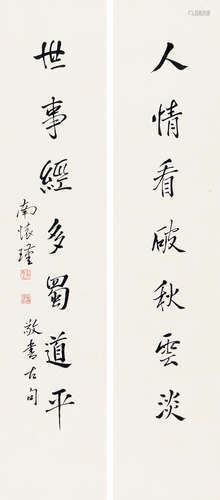 人情看破秋雲淡
世事經多蜀道平
南懷瑾
敬書古句